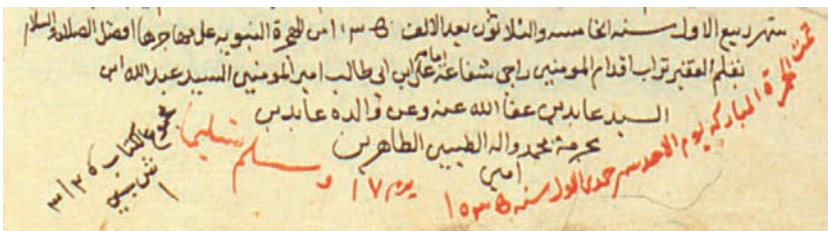 شهر ربيع الاول سنه الخامسه والثلاثون بعد الالف ١٠٣٥ من الهجرة النبويه على مهاجرها افضل الصلاة والسلام
بقلم الفقير تراب اقدام المومنين راجي شفاعة امامه علي ابن ابي طالب امير المومنين السيد عبد الله ابن
السيد عابدين عفا الله عنه وعن والده عابدين
بحرمة محمد واله الطيبين الطاهرين
امين
تمت المباركه يوم الاحد شهر جمدى الاول سنه ١٠٣٥
يوم ١٧ وسلم تسليما
الكتاب